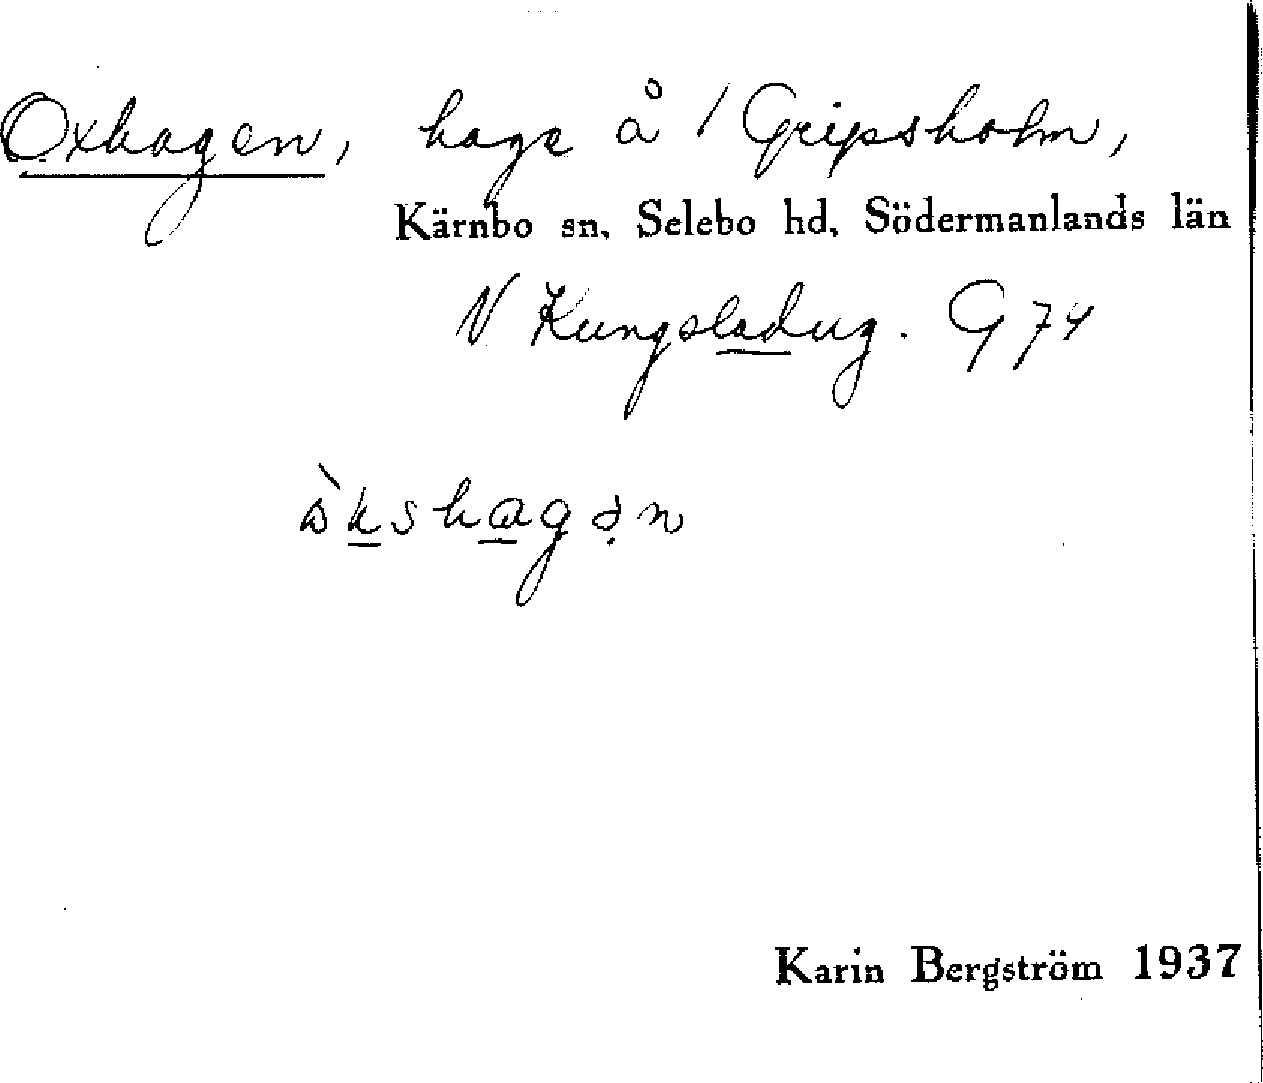 Oxhagen, hage å 1 Gripsholm,
Kärnbo sn, Selebo hd, Södermanlands län
N Kungsladug. G 74
òkshagən
Karin Bergström 1937